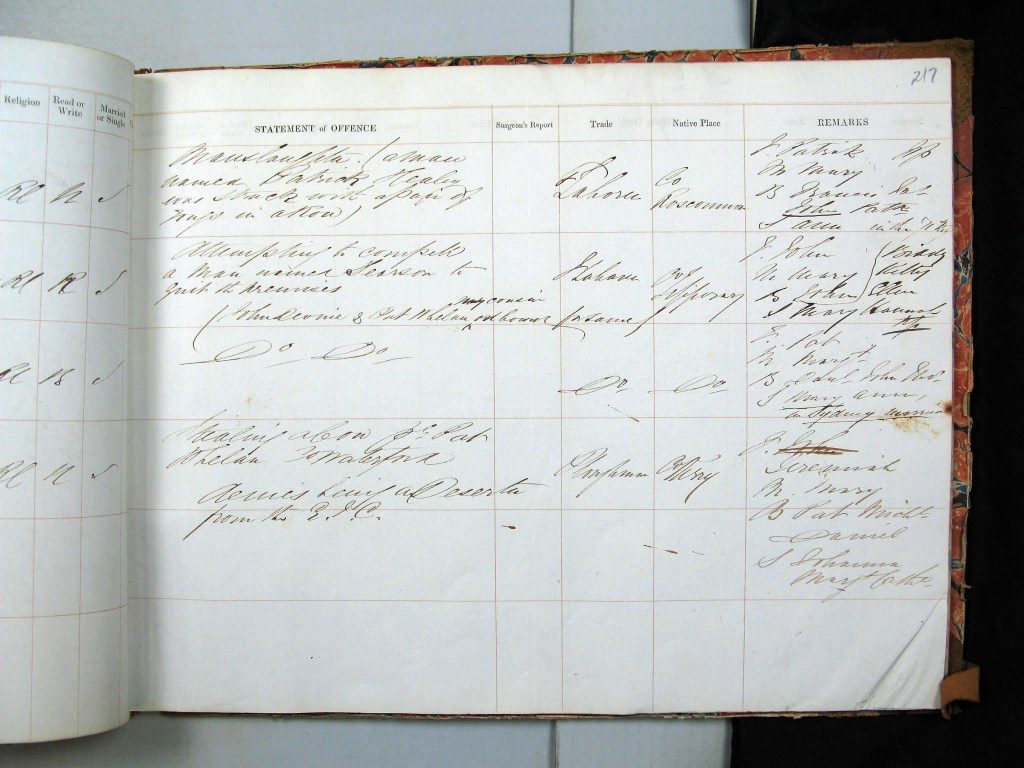 217
Religion Read or Write Married or Single
STATEMENT of OFFENCE Surgeon's Report Trade Native Place REMARKS
Manslaughter. (a man
named Patrick Healy
was struck with a pair of
tongs in a row)
RC N S
Laborer
Co
Roscommon
F Patrick
M Mary
B Francis Pat
John
S Ann in the
Attempting to compell
a man named Pearson to
quit the premises
(John & Pat Whelan my cousin for same)
RC R S
Laborer
Co
Tipperary
F John
M Mary
B John
S Mary Hannah
Biddy
Kitty
Ellen
Do Do
RC S
Do Do
F Pat
M Margt
B Paul John
S Mary Ann,
in Sydney married
Stealing a Cow pr Pat
Whelan Co Waterford
denies being a Deserter
from the E.I.C.
RC N S
Ploughman
Co Kerry
F John
Jeremiah
M Mary
B Pat Michl
Daniel
S Johanna
Margt Cathe